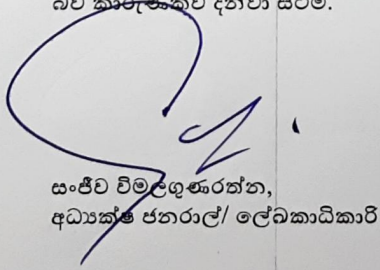 බව කාරුණිකව දන්වා සිටිමි.
සංජීව විමලගුණරත්න,
අධ්‍යක්ෂ ජනරාල්/ ලේඛකාධිකාරි